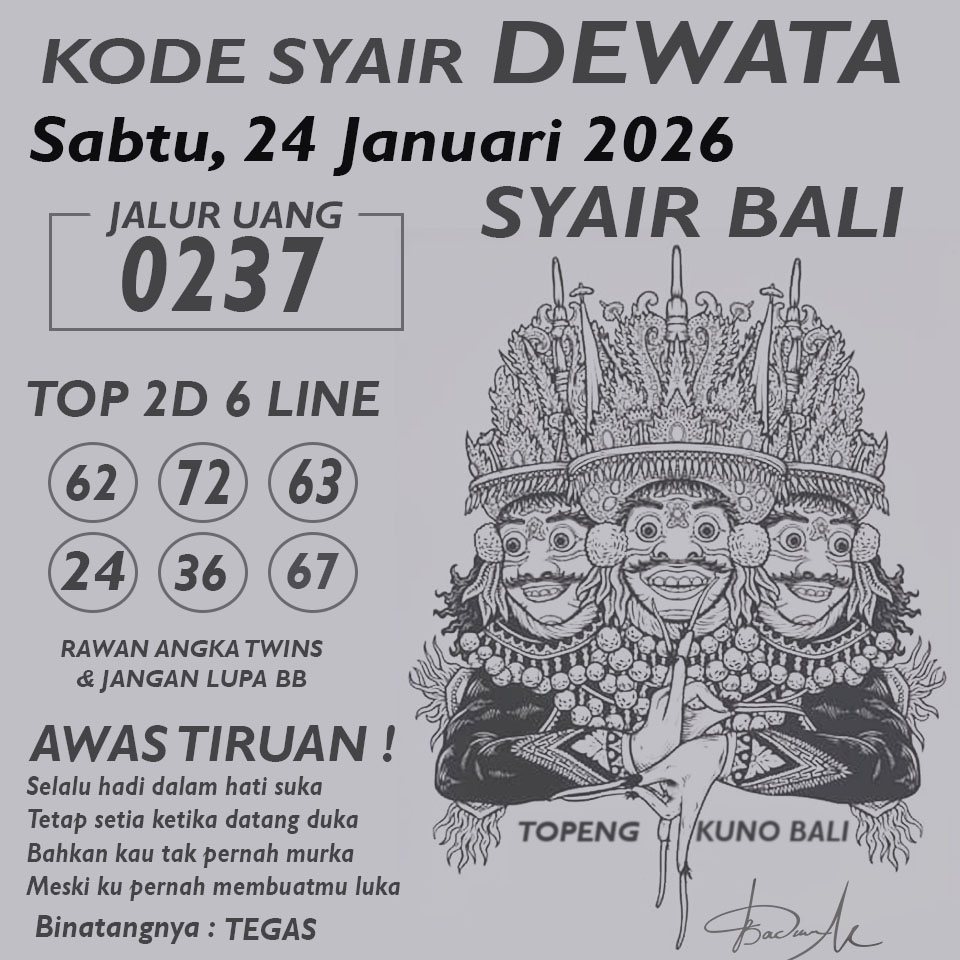 KODE SYAIR DEWATA
Sabtu, 24 Januari 2026
SYAIR BALI
JALUR UANG
0237
TOP 2D 6 LINE
62 72 63
24 36 67
RAWAN ANGKA TWINS
& JANGAN LUPA BB
AWAS TIRUAN !
Selalu hadi dalam hati suka
Tetap setia ketika datang duka
Bahkan kau tak pernah murka
Meski ku pernah membuatmu luka
Binatangnya : TEGAS
TOPENG KUNO BALI